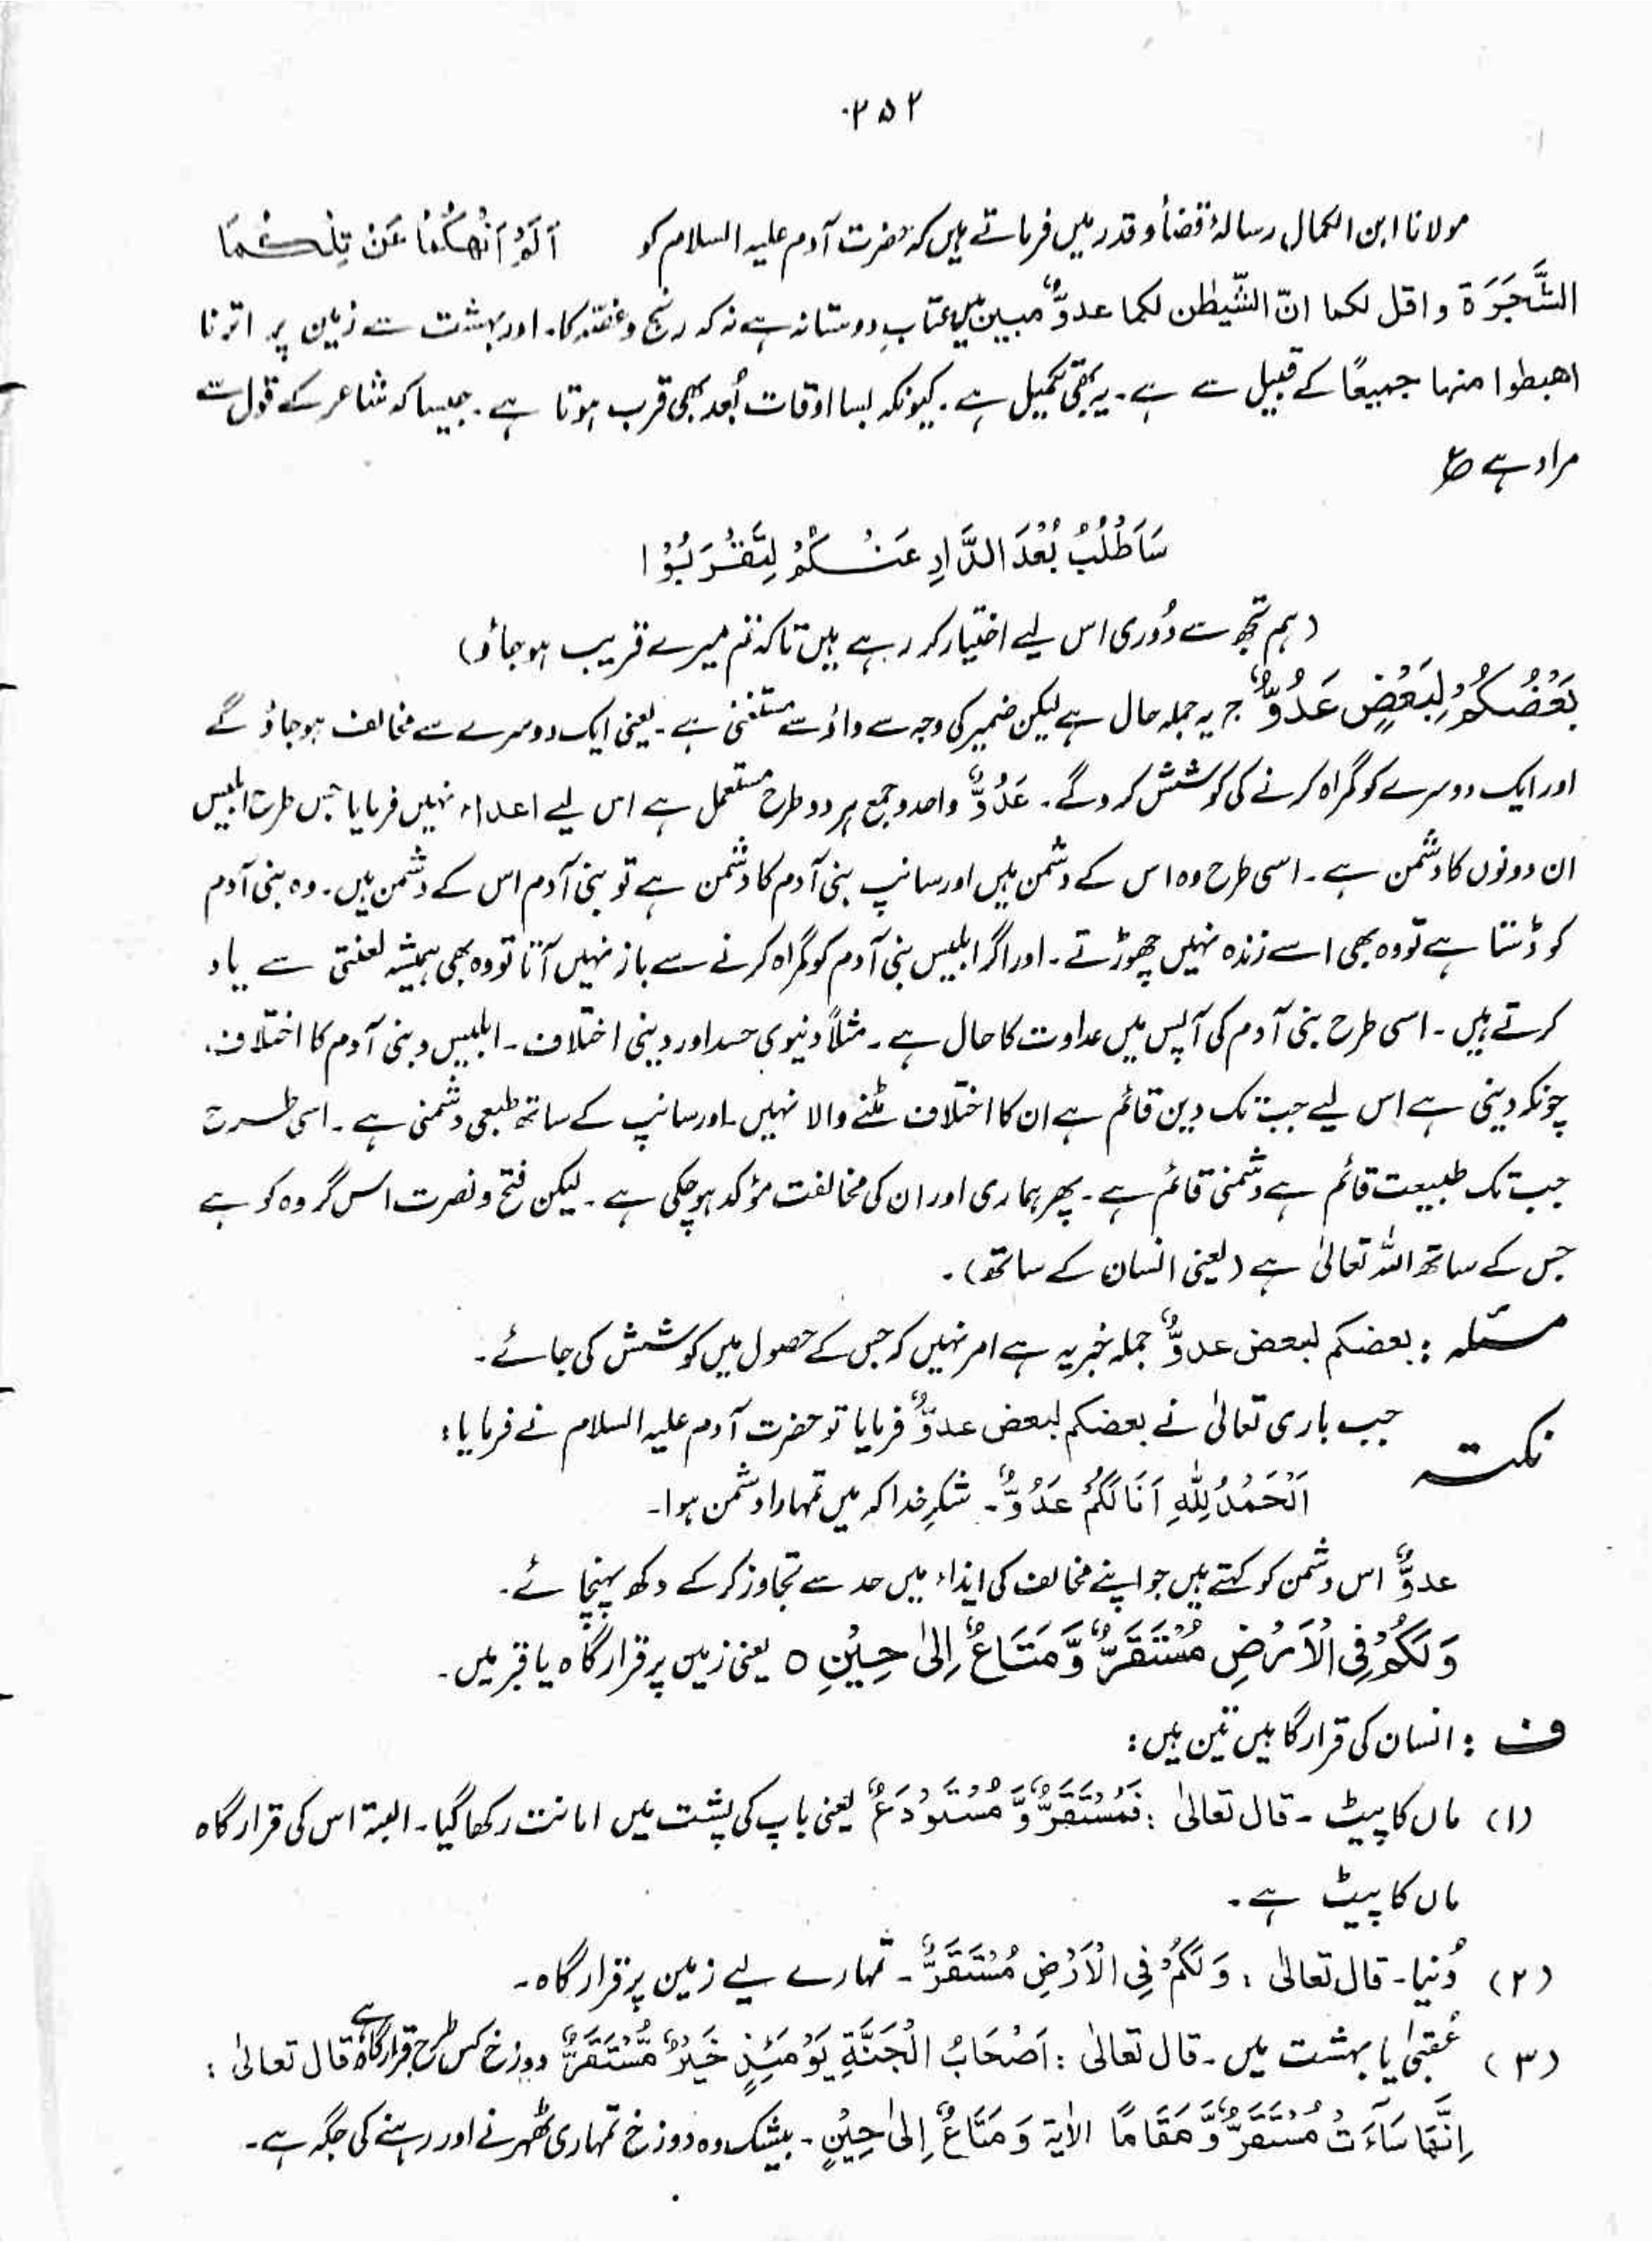 ۲۵۲
مولانا ابن الکمال رسالۂ قضأ و قدر میں فرماتے ہیں کہ حضرت آدم علیہ السلام کو اَلَمْ اَنْھَکُمَا عَنْ تِلْکُمَا
الشَّجَرَۃ و اقل لکما انّ الشّیطٰن لکما عدوٌّ مبین میں عتابِ دوستانہ ہے نہ کہ رنج و غصّہ کا۔ اور بہشت سے زمین پر اترنا
اھبطوا منہا جمیعًا کے قبیل سے ہے۔ یہ بھی تکمیل ہے۔ کیونکہ بسا اوقات بُعد بھی قرب ہوتا ہے۔ جیسا کہ شاعر کے قول سے
مراد ہے ؏
سَاَطْلُبُ بُعْدَ الدَّارِ عَنْکُمْ لِتَقْرَبُوْا
(ہم تجھ سے دُوری اس لیے اختیار کر رہے ہیں تاکہ تم میرے قریب ہو جاؤ)
بَعْضُکُمْ لِبَعْضٍ عَدُوٌّ ج یہ جملہ حال ہے لیکن ضمیر کی وجہ سے واؤ سے مستغنی ہے۔ یعنی ایک دوسرے سے مخالف ہو جاؤ گے
اور ایک دوسرے کو گمراہ کرنے کی کوشش کرو گے۔ عَدُوٌّ واحد و جمع ہر دو طرح مستعمل ہے اس لیے اعداء نہیں فرمایا جس طرح ابلیس
ان دونوں کا دشمن ہے۔ اسی طرح وہ اس کے دشمن ہیں اور سانپ بنی آدم کا دشمن ہے تو بنی آدم اس کے دشمن ہیں۔ وہ بنی آدم
کو ڈستا ہے تو وہ بھی اسے زندہ نہیں چھوڑتے۔ اور اگر ابلیس بنی آدم کو گمراہ کرنے سے باز نہیں آتا تو وہ بھی ہمیشہ لعنتی سے یاد
کرتے ہیں۔ اسی طرح بنی آدم کی آپس میں عداوت کا حال ہے۔ مثلاً دنیوی حسد اور دینی اختلاف۔ ابلیس و بنی آدم کا اختلاف
چونکہ دینی ہے اس لیے جب تک دین قائم ہے ان کا اختلاف مٹنے والا نہیں۔ اور سانپ کے ساتھ طبعی دشمنی ہے۔ اسی طرح
جب تک طبیعت قائم ہے دشمنی قائم ہے۔ پھر ہماری اور ان کی مخالفت مؤکد ہو چکی ہے۔ لیکن فتح و نصرت اس گروہ کو ہے
جس کے ساتھ اللہ تعالیٰ ہے (یعنی انسان کے ساتھ)۔
مسئلہ : بعضکم لبعض عدوٌّ جملہ خبریہ ہے امر نہیں کہ جس کے حصول میں کوشش کی جائے۔
نکتہ جب باری تعالیٰ نے بعضکم لبعض عدوٌّ فرمایا تو حضرت آدم علیہ السلام نے فرمایا :
اَلْحَمْدُ لِلّٰہِ اَنَا لَکُمْ عَدُوٌّ۔ شکرِ خدا کہ میں تمہارا دشمن ہوا۔
عدوٌّ اس دشمن کو کہتے ہیں جو اپنے مخالف کی ایذاء میں حد سے تجاوز کر کے دکھ پہنچائے۔
وَلَکُمْ فِی الْاَرْضِ مُسْتَقَرٌّ وَّ مَتَاعٌ اِلیٰ حِیْنٍ ○ یعنی زمین پر قرار گاہ یا قبر میں۔
ف : انسان کی قرار گاہیں تین ہیں :
(۱) ماں کا پیٹ۔ قال تعالیٰ : فَمُسْتَقَرٌّ وَّ مُسْتَوْدَعٌ یعنی باپ کی پشت میں امانت رکھا گیا۔ البتہ اس کی قرار گاہ
ماں کا پیٹ ہے۔
(۲) دُنیا۔ قال تعالیٰ : وَ لَکُمْ فِی الْاَرْضِ مُسْتَقَرٌّ۔ تمہارے لیے زمین پر قرار گاہ۔
(۳) عُقبیٰ یا بہشت میں۔ قال تعالیٰ : اَصْحَابُ الْجَنَّۃِ یَوْمَئِذٍ خَیْرٌ مُّسْتَقَرٌّ دوزخ کس طرح قرار گاہ ہے قال تعالیٰ :
اِنَّھَا سَآءَتْ مُسْتَقَرٌّ وَّ مَقَامًا الاٰیۃ وَ مَتَاعٌ اِلیٰ حِیْنٍ۔ بیشک وہ دوزخ تمہاری ٹھہرنے اور رہنے کی جگہ ہے۔